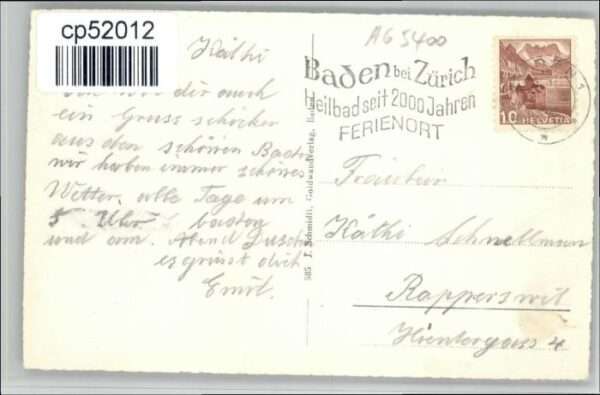 cp52012
AG 5400
Käthi
dir auch
ein Gruss schicken
aus dem schönen Baden
wir haben immer schönes
Wetter, alle Tage um
5 Uhr baden
und am Abend Dusch
es grüsst dich
Emil.
585 J. Schmidt, Guldwandverlag, Baden
Baden bei Zürich
Heilbad seit 2000 Jahren
FERIENORT
10 HELVETIA
Fräulein
Käthi Schnellmann
Rapperswil
Hintergass 4